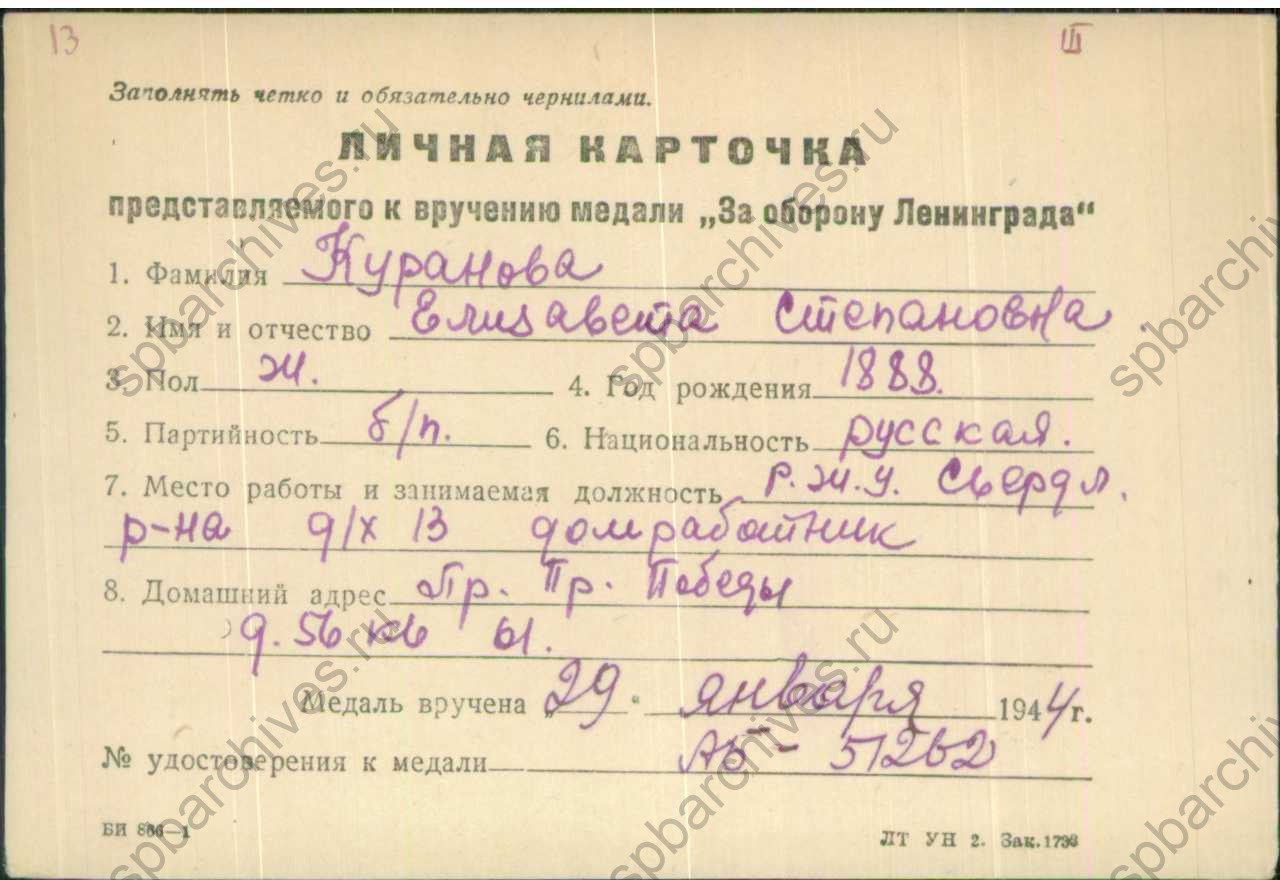 13 III
Заполнять четко и обязательно чернилами.
ЛИЧНАЯ КАРТОЧКА
представляемого к вручению медали „За оборону Ленинграда“
1. Фамилия Куранова
2. Имя и отчество Елизавета Степановна
3. Пол ж. 4. Год рождения 1888.
5. Партийность б/п. 6. Национальность русская.
7. Место работы и занимаемая должность Р.Ж.У. Свердл.
р-на д/х 13 домработник
8. Домашний адрес Пр. Победы
д. 56 кв 61.
Медаль вручена „29“ января 1944 г.
№ удостоверения к медали АБ - 51262
БИ 866—1
ЛТ УН 2. Зак.
spbarchives.ru